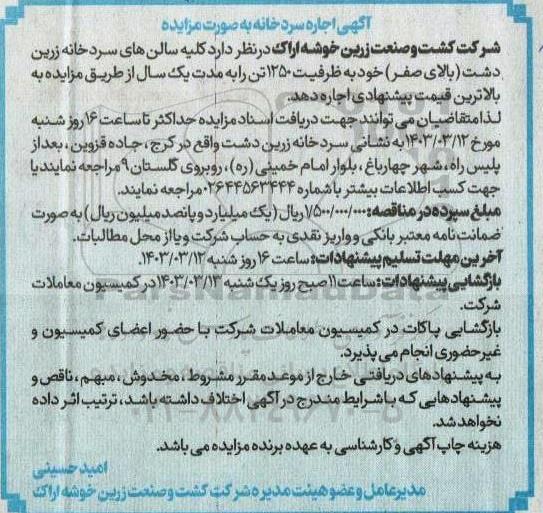 آگهی اجاره سردخانه به صورت مزایده
شرکت کشت و صنعت زرین خوشه اراک در نظر دارد کلیه سالن های سردخانه زرین
دشت (بالای صفر) خود به ظرفیت ۱۲۵۰ تن را به مدت یک سال از طریق مزایده به
بالاترین قیمت پیشنهادی اجاره دهد.
لذا متقاضیان می توانند جهت دریافت اسناد مزایده حداکثر تا ساعت ۱۶ روز شنبه
مورخ ۱۴۰۳/۰۳/۱۲ به نشانی سردخانه زرین دشت واقع در کرج، جاده قزوین، بعد از
پلیس راه، شهر چهارباغ، بلوار امام خمینی (ره)، روبروی گلستان ۹ مراجعه نمایند یا
جهت کسب اطلاعات بیشتر با شماره ۰۲۶۴۴۵۶۳۴۴۴ مراجعه نمایند.
مبلغ سپرده در مناقصه: ۱/۵۰۰/۰۰۰/۰۰۰ ریال (یک میلیارد و پانصد میلیون ریال) به صورت
ضمانت نامه معتبر بانکی و واریز نقدی به حساب شرکت و یا از محل مطالبات.
آخرین مهلت تسلیم پیشنهادات: ساعت ۱۶ روز شنبه ۱۴۰۳/۰۳/۱۲.
بازگشایی پیشنهادات: ساعت ۱۱ صبح روز یک شنبه ۱۴۰۳/۰۳/۱۳ در کمیسیون معاملات
شرکت.
بازگشایی پاکات در کمیسیون معاملات شرکت با حضور اعضای کمیسیون و
غیرحضوری انجام می پذیرد.
به پیشنهادهای دریافتی خارج از موعد مقرر مشروط، مخدوش، مبهم، ناقص و
پیشنهادهایی که با شرایط مندرج در آگهی اختلاف داشته باشد، ترتیب اثر داده
نخواهد شد.
هزینه چاپ آگهی و کارشناسی به عهده برنده مزایده می باشد.
امید حسینی
مدیرعامل و عضو هیئت مدیره شرکت کشت و صنعت زرین خوشه اراک